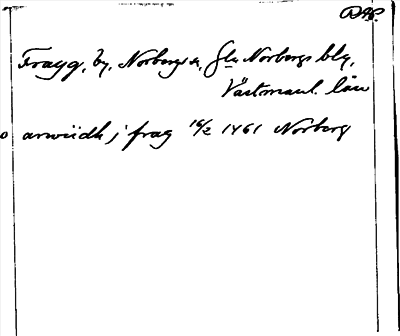 Fragg, by, Norbergs s., Gla Norbergs blg,
Västmanl. län
o arwiidh j frag 16/2 1461 Norberg